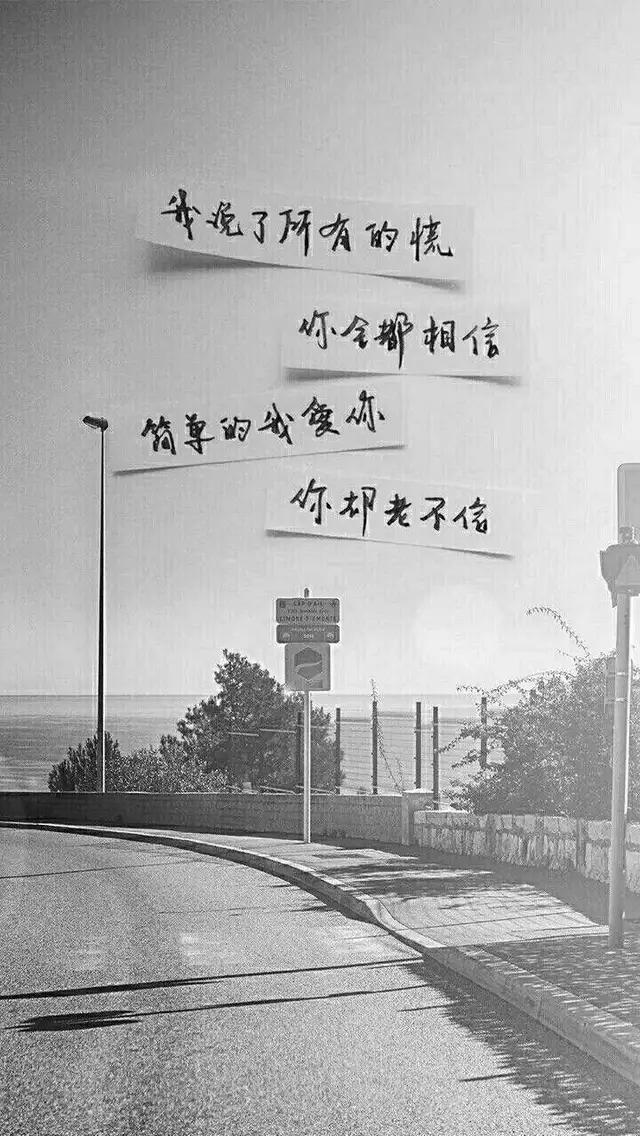 我说了所有的慌
你全都相信
简单的我爱你
你却老不信
CAP D'AIL